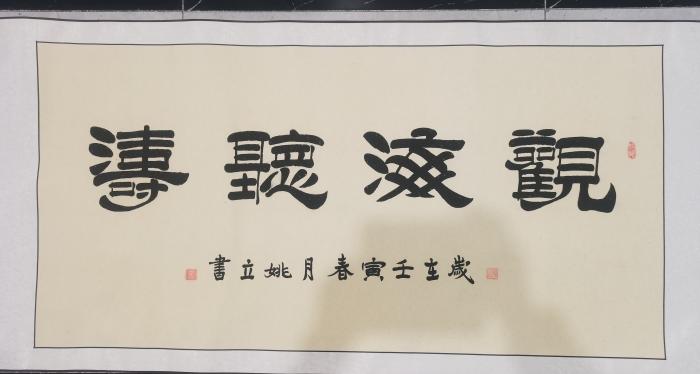 觀海聽濤
歲在壬寅春月姚立書